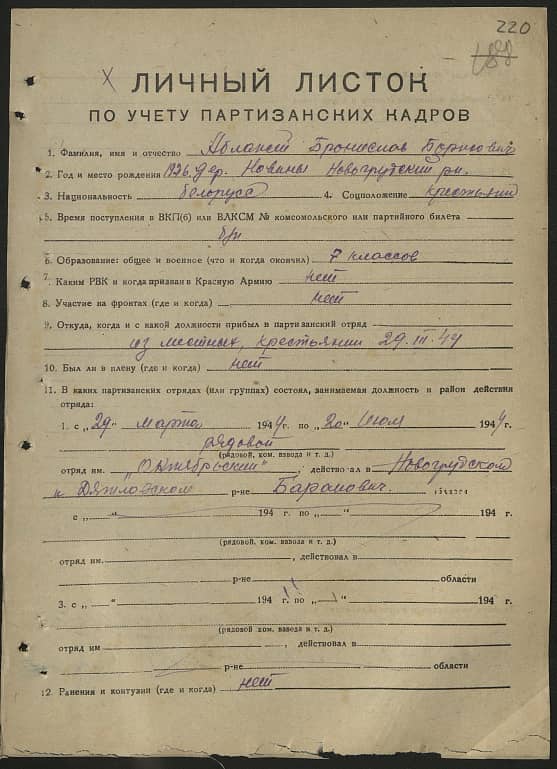 220
Х ЛИЧНЫЙ ЛИСТОК
ПО УЧЕТУ ПАРТИЗАНСКИХ КАДРОВ
1. Фамилия, имя и отчество Бронислав Борисович
2. Год и место рождения 1926 дер. Новины Новогрудский рн.
3. Национальность белорус 4. Соцположение крестьянин
5. Время поступления в ВКП(б) или ВЛКСМ № комсомольского или партийного билета
б/п
6. Образование: общее и военное (что и когда окончил) 7 классов
7. Каким РВК и когда призван в Красную Армию нет
8. Участие на фронтах (где и когда) нет
9. Откуда, когда и с какой должности прибыл в партизанский отряд
из местных, крестьянин 29.III.44
10. Был ли в плену (где и когда) нет
11. В каких партизанских отрядах (или группах) состоял, занимаемая должность и район действия
отряда:
1. с „29" марта 1944 г. по „20" июл 1944 г.
рядовой
(рядовой, ком. взвода и т. д.)
отряд им. „Октябрьский", действовал в Новогрудском
и Дятловском р-не Баранович. области
с „ " 194 г. по „ " 194 г.
(рядовой, ком. взвода и т. д.)
отряд им. , действовал в
р-не области
3. с „ " 194 г. по „ " 194 г.
(рядовой ком. взвода и т. д.)
отряд им , действовал в
р-не области
12. Ранения и контузии (где и когда) нет